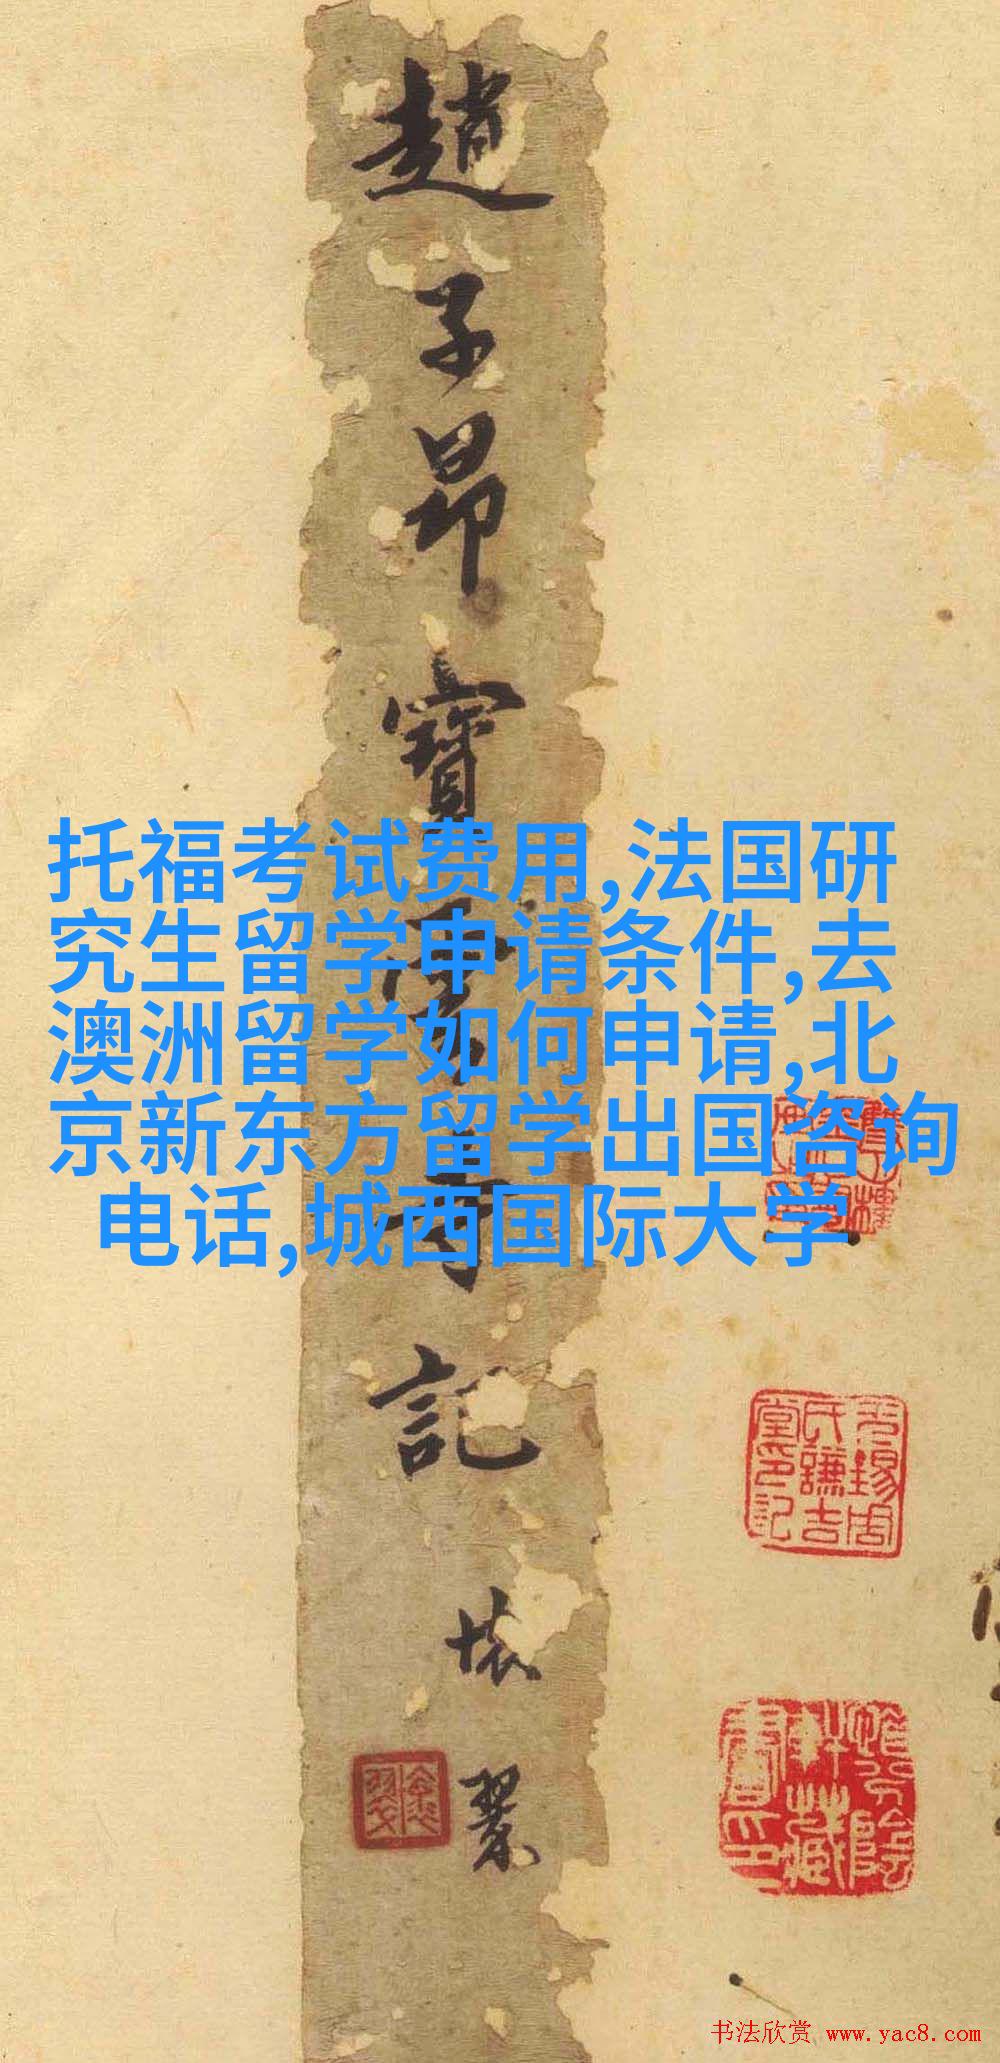 趙子昂寶雲寺記
懷翠
托福考试费用,法国研
究生留学申请条件,去
澳洲留学如何申请,北
京新东方留学出国咨询
电话,城西国际大学
无锡周
氏謙吉
堂印記
书法欣赏 www.yac8.com